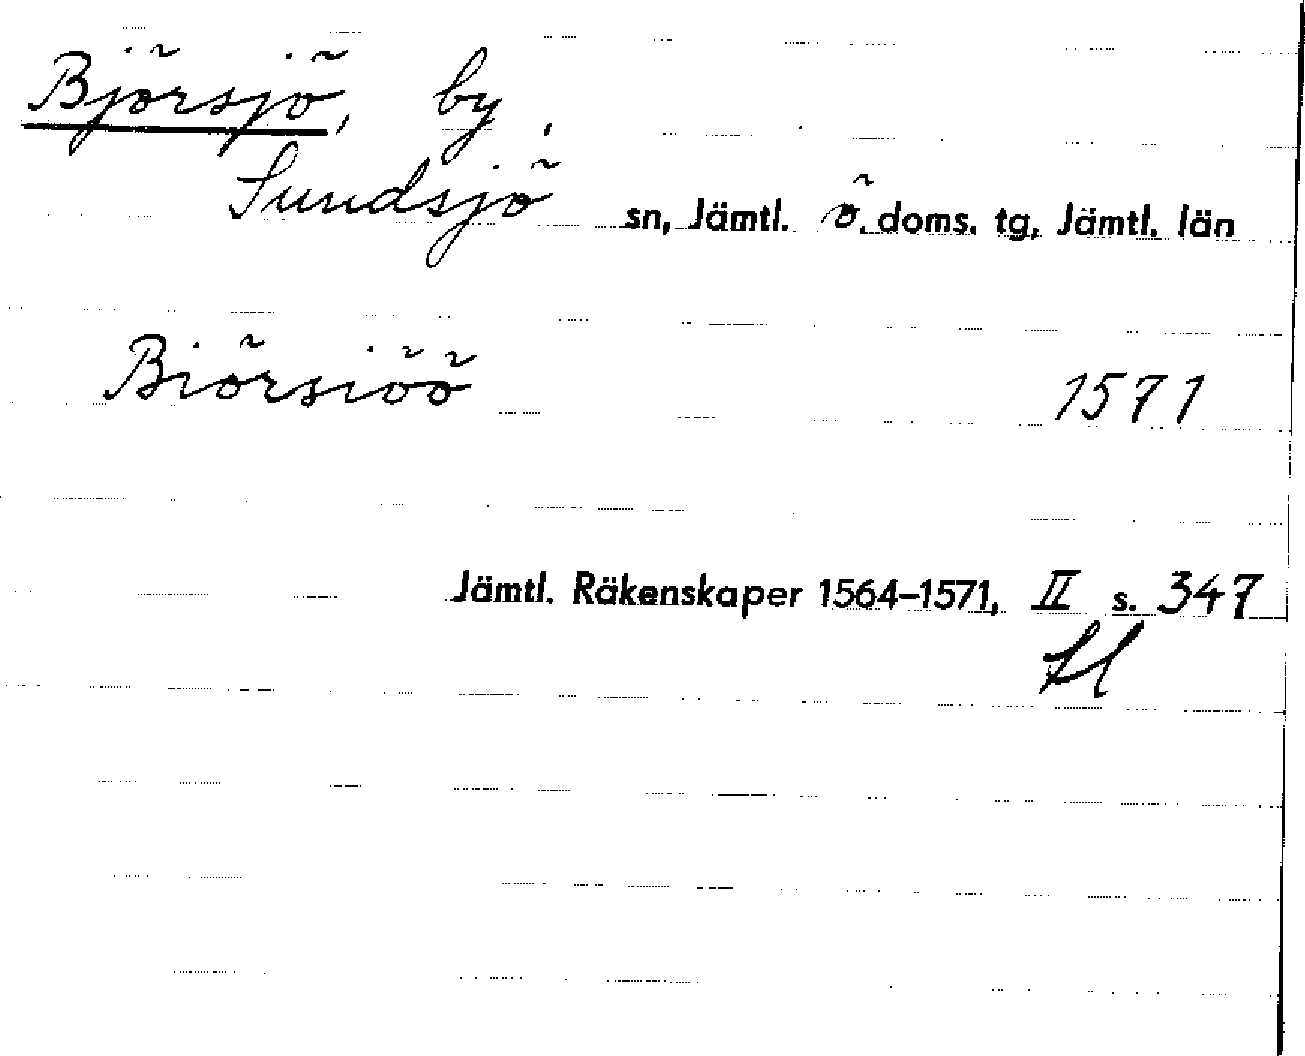 Björsjö, by,
Sundsjö sn, Jämtl. ö. doms. tg, Jämtl. län
Biörsiöö 1571
Jämtl. Räkenskaper 1564–1571, II s. 347